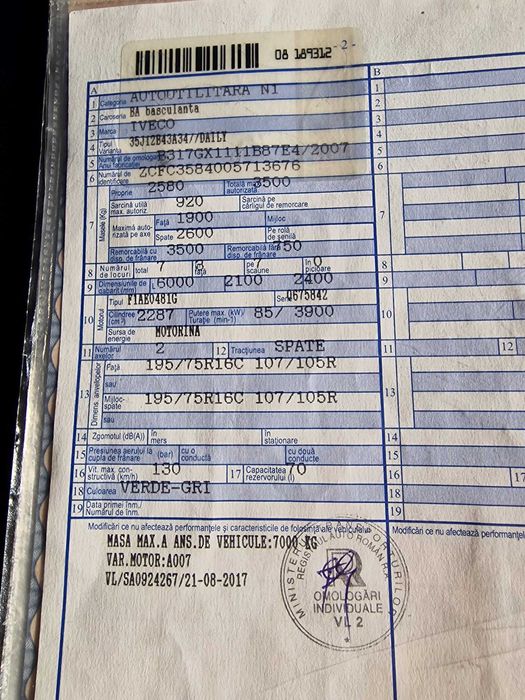 08 189312 -2-
A
B
1 Categoria AUTOUTILITARA N1
2 Caroseria BA basculanta
3 Marca IVECO
4 Tipul Varianta 35J12B43A34//DAILY
5 Numărul de omologare Anul fabricației B317GX1111B87E4/2007
6 Numărul de identificare ZCFC3584005713676
7 Masele (Kg)
Proprie 2580 Totală max. autorizată 3500
Sarcină utilă max. autoriz. 920 Sarcină pe cârligul de remorcare
Maximă autorizată pe axe Față 1900 Mijloc
Spate 2600 Pe rolă de șenilă
Remorcabilă cu disp. de frânare 3500 Remorcabilă fără disp. de frânare 750
8 Numărul de locuri total 7 față 3 pe scaune 7 în picioare 0
9 Dimensiunile de gabarit (mm) 6000 2100 2400
10 Motorul
Tipul F1AE0481G Seria Q675842
Cilindree (cm³) 2287 Putere max. (kW) Turație (min-1) 85/ 3900
Sursa de energie MOTORINA
11 Numărul axelor 2 12 Tracțiunea SPATE
13 Dimens. anvelopelor
Față 195/75R16C 107/105R
sau
Mijloc-spate 195/75R16C 107/105R
sau
14 Zgomotul (dB(A)) în mers în staționare
15 Presiunea aerului la cupla de frânare (bar) cu o conductă cu două conducte
16 Vit. max. constructivă (km/h) 130 17 Capacitatea rezervorului (l) 70
18 Culoarea VERDE-GRI
19 Data primei înm./ Numărul de înm.
Modificări ce nu afectează performanțele și caracteristicile de folosință ale vehiculului
MASA MAX.A ANS.DE VEHICULE:7000 KG
VAR.MOTOR:A007
VL/SA0924267/21-08-2017
MINISTERUL TRANSPORTURILOR
REGISTRUL AUTO ROMÂN R.A.
OMOLOGĂRI
INDIVIDUALE
VL 2
1
2
3
4
5
6
7
8
9
10
11
13
14
15
16
18
19
Modificări ce nu afectează performanțele